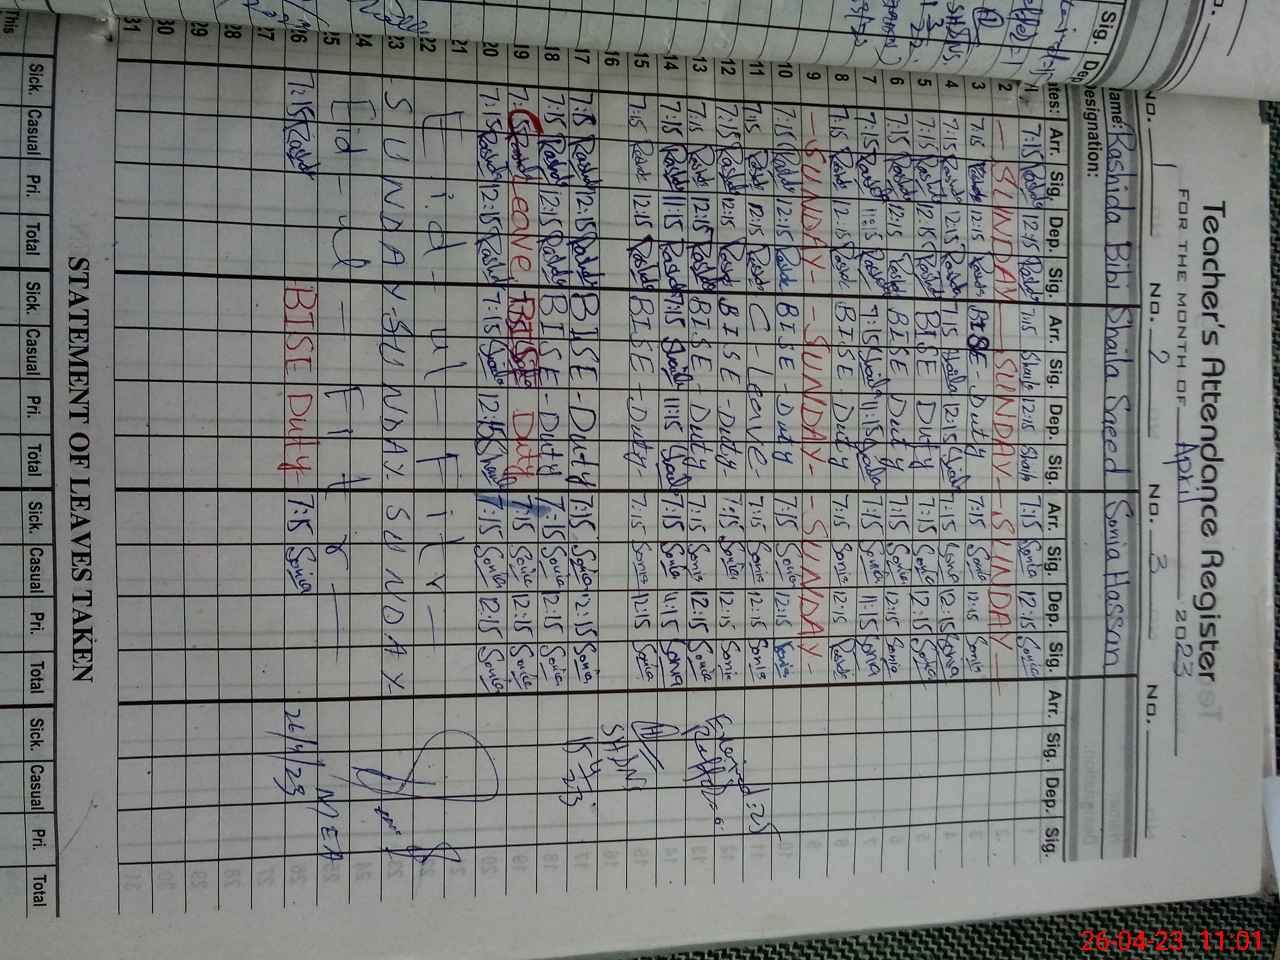 Teacher's Attendance Register
FOR THE MONTH OF April 2023
No. 1 No. 2 No. 3 No.
Name: Rashida Bibi Shaila Saeed Sonia Hassan
Designation:
Dates: Arr. Sig. Dep. Sig. Arr. Sig. Dep. Sig. Arr. Sig. Dep. Sig. Arr. Sig. Dep. Sig.
1 7:15 Rashda 12:15 Rashda 7:15 Shaila 12:15 Shaila 7:15 Sonia 12:15 Sonia
2 - SUNDAY - SUNDAY - SUNDAY -
3 7:15 Rashda 12:15 Rashda BISE - Duty 7:15 Sonia 12:15 Sonia
4 7:15 Rashda 12:15 Rashda 7:15 Shaila 12:15 Shaila 7:15 Sonia 12:15 Sonia
5 7:15 Rashda 12:15 Rashda BISE Duty 7:15 Sonia 12:15 Sonia
6 7:15 Rashda 12:15 Rashda BISE Duty 7:15 Sonia 12:15 Sonia
7 7:15 Rashda 11:15 Rashda 7:15 Shaila 11:15 Shaila 7:15 Sonia 11:15 Sonia
8 7:15 Rashda 12:15 Rashda BISE - Duty 7:15 Sonia 12:15
9 - SUNDAY - - SUNDAY - - SUNDAY -
10 7:15 Rashda 12:15 Rashda BISE - Duty 7:15 Sonia 12:15 Sonia
11 7:15 Rashda 12:15 Rashda C - Leave - 7:15 Sonia 12:15 Sonia
12 7:15 Rashda 12:15 Rashda BISE - Duty - 7:15 Sonia 12:15 Sonia
13 7:15 Rashda 12:15 Rashda BISE - Duty - 7:15 Sonia 12:15 Sonia
14 7:15 Rashda 11:15 Rashda 7:15 Shaila 11:15 Shaila 7:15 Sonia 11:15 Sonia
15 7:15 Rashda 12:15 Rashda BISE - Duty - 7:15 Sonia 12:15 Sonia
16
17 7:15 Rashda 12:15 Rashda BISE - Duty 7:15 Sonia 12:15 Sonia
18 7:15 Rashda 12:15 Rashda BISE - Duty 7:15 Sonia 12:15 Sonia
19 Leave BISE Duty 7:15 Sonia 12:15 Sonia
20 7:15 Rashda 12:15 Rashda 7:15 Shaila 12:15 Shaila 7:15 Sonia 12:15 Sonia
21
22 Eid - ul - Fitr -
23 SUNDAY - SUNDAY - SUNDAY -
24
25 Eid - ul - Fitr
26 7:15 Rashda BISE Duty - 7:15 Sonia
27
28
29
30
31
15-4-23
MEA
26/4/23
STATEMENT OF LEAVES TAKEN
Sick. Casual Pri. Total Sick. Casual Pri. Total Sick. Casual Pri. Total Sick. Casual Pri. Total
This
26-04-23 11:01